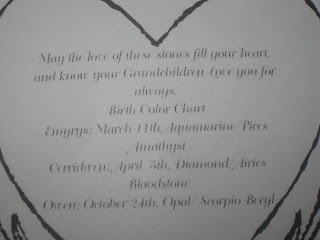 May the love of these stones fill your heart,
and know your Grandchildren Love you for
always.
Birth Color Chart
Emyrys: March 11th, Aquamarine/Pices
Amathyst
Cerridwen: April 5th, Diamond/Airies
Bloodstone
Owen: October 24th, Opal/Scorpio Beryl